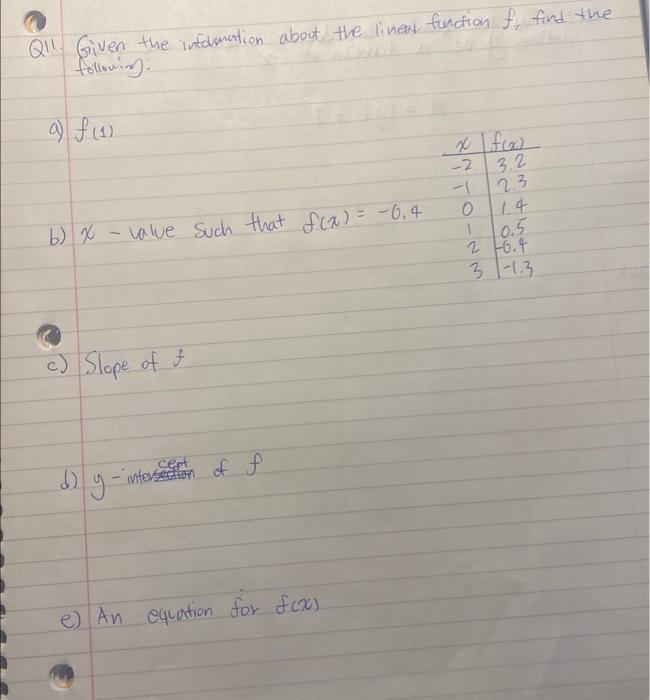 Q11. Given the information about the linear function f, find the
following:
a) f(1)
x | f(x)
-2 | 3.2
-1 | 2.3
0 | 1.4
1 | 0.5
2 | -0.4
3 | -1.3
b) x - value such that f(x) = -0.4
c) Slope of f
d) y - intercept of f
e) An equation for f(x)